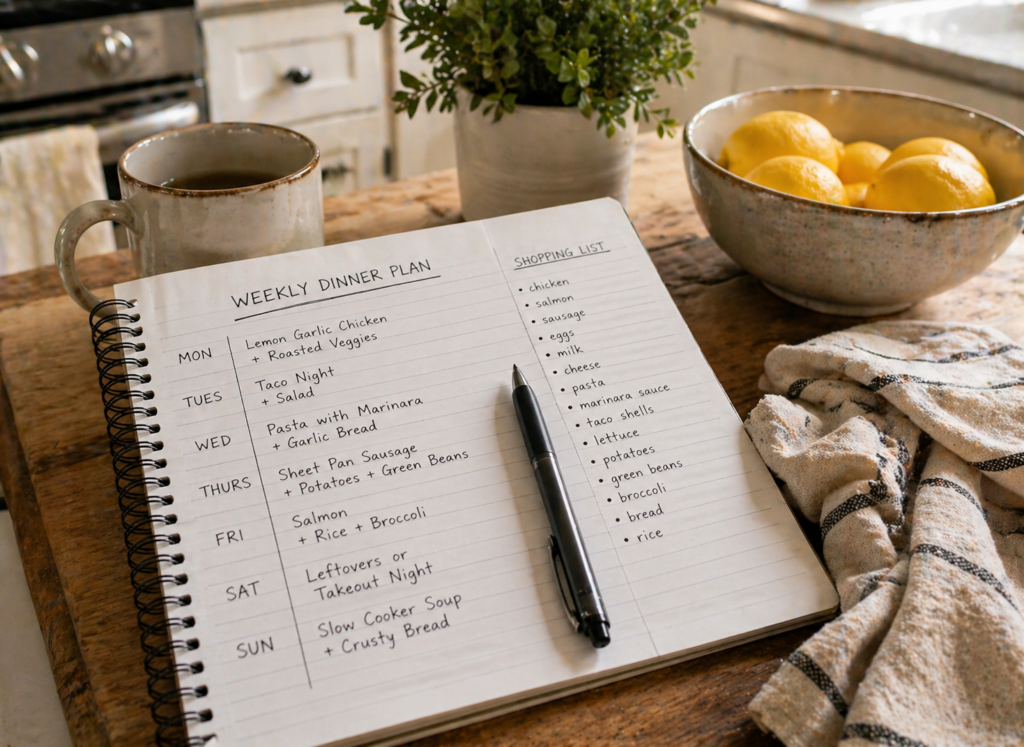 WEEKLY DINNER PLAN
MON
Lemon Garlic Chicken
+ Roasted Veggies
TUES
Taco Night
+ Salad
WED
Pasta with Marinara
+ Garlic Bread
THURS
Sheet Pan Sausage
+ Potatoes + Green Beans
FRI
Salmon
+ Rice + Broccoli
SAT
Leftovers or
Takeout Night
SUN
Slow Cooker Soup
+ Crusty Bread
SHOPPING LIST
• chicken
• salmon
• sausage
• eggs
• milk
• cheese
• pasta
• marinara sauce
• taco shells
• lettuce
• potatoes
• green beans
• broccoli
• bread
• rice